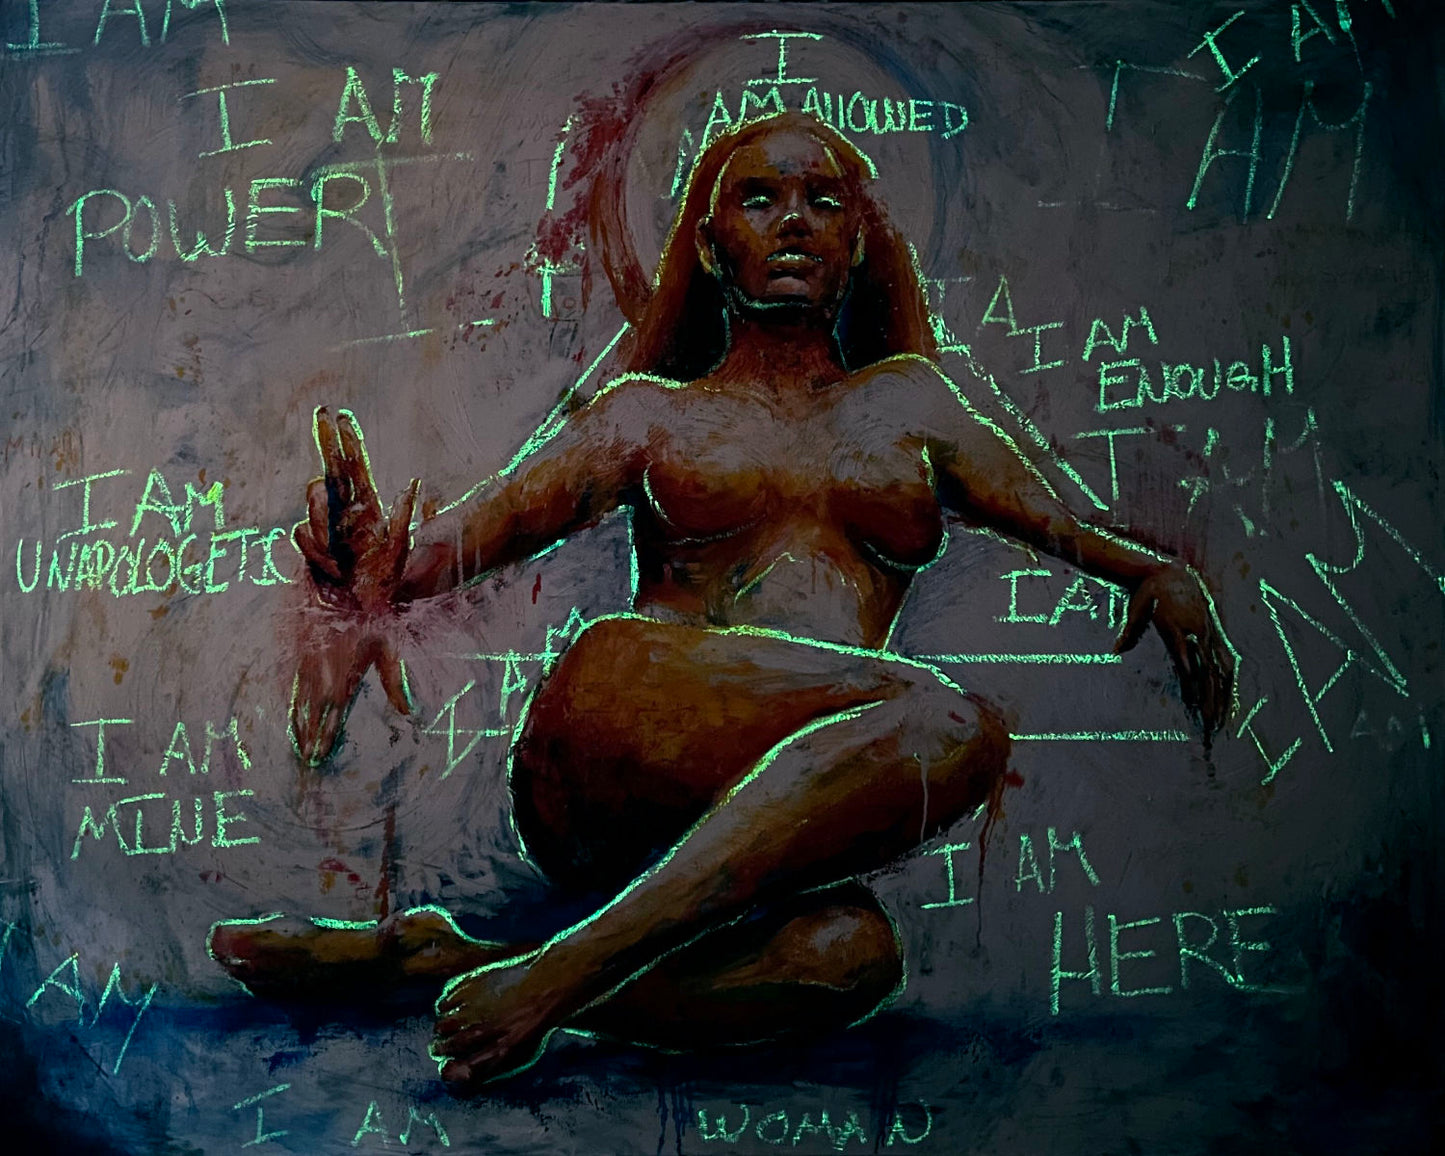 I AM
I AM
POWER
I
AM ALLOWED
I AM
I
AM
I A
I AM
ENOUGH
I AM
I AM
UNAPOLOGETIC
I AM
I AM
I AM
AM
I AM
MINE
I AM
HERE
I AM
I AM
WOMAN